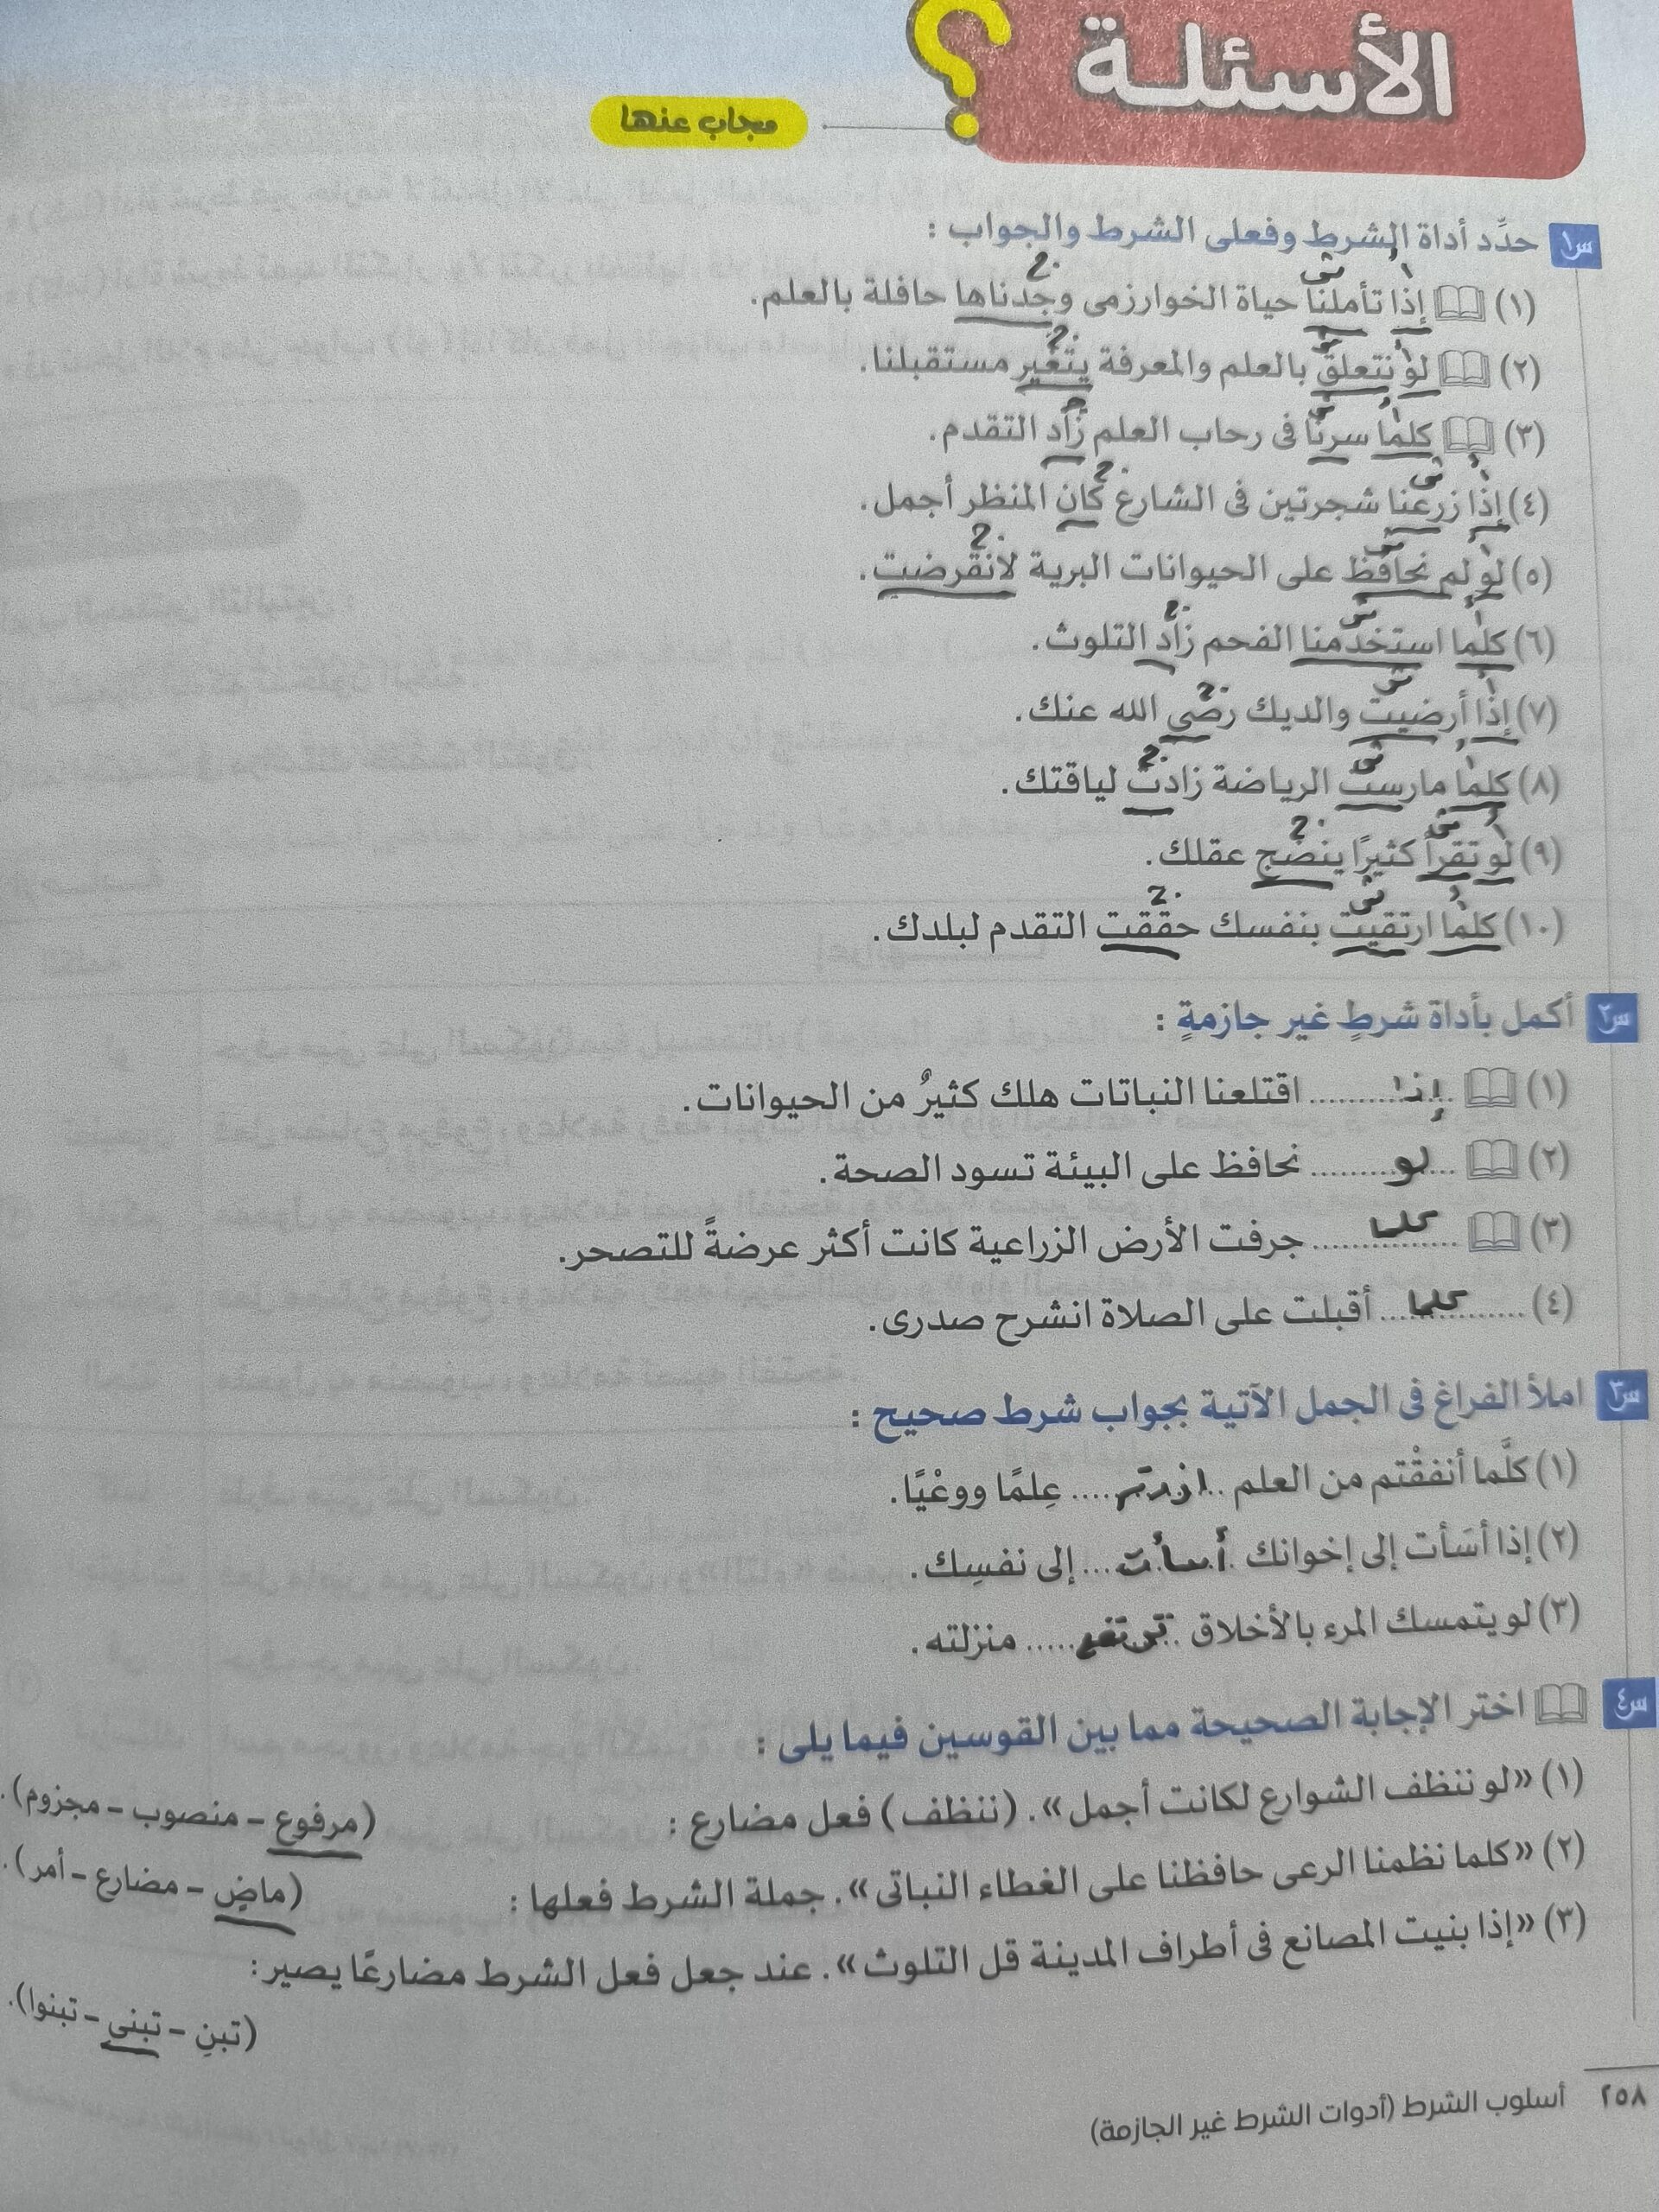 الأسئلة ؟
مجاب عنها
س١ حدِّد أداة الشرط وفعلى الشرط والجواب :
(١) إذا تأملنا حياة الخوارزمى وجدناها حافلة بالعلم.
(٢) لو نتعلق بالعلم والمعرفة يتغير مستقبلنا.
(٣) كلما سرنا فى رحاب العلم زاد التقدم.
(٤) إذا زرعنا شجرتين فى الشارع كان المنظر أجمل.
(٥) لو لم نحافظ على الحيوانات البرية لانقرضت.
(٦) كلما استخدمنا الفحم زاد التلوث.
(٧) إذا أرضيت والديك رضى الله عنك.
(٨) كلما مارست الرياضة زادت لياقتك.
(٩) لو تقرأ كثيرًا ينضج عقلك.
(١٠) كلما ارتقيت بنفسك حققت التقدم لبلدك.
س٢ أكمل بأداة شرطٍ غير جازمةٍ :
(١) إذا اقتلعنا النباتات هلك كثيرٌ من الحيوانات.
(٢) لو نحافظ على البيئة تسود الصحة.
(٣) كلما جرفت الأرض الزراعية كانت أكثر عرضةً للتصحر.
(٤) كلما أقبلت على الصلاة انشرح صدرى.
س٣ املأ الفراغ فى الجمل الآتية بجواب شرط صحيح :
(١) كلَّما أنفقْتم من العلم ازددتم عِلمًا ووعْيًا.
(٢) إذا أسَأت إلى إخوانك أسأت إلى نفسِك.
(٣) لو يتمسك المرء بالأخلاق ترتفع منزلته.
س٤ اختر الإجابة الصحيحة مما بين القوسين فيما يلى :
(١) «لو ننظف الشوارع لكانت أجمل». (ننظف) فعل مضارع : (مرفوع – منصوب – مجزوم).
(٢) «كلما نظمنا الرعى حافظنا على الغطاء النباتى». جملة الشرط فعلها : (ماضٍ – مضارع – أمر).
(٣) «إذا بنيت المصانع فى أطراف المدينة قل التلوث». عند جعل فعل الشرط مضارعًا يصير :
(تبنِ – تبنى – تبنوا).
٢٥٨ أسلوب الشرط (أدوات الشرط غير الجازمة)